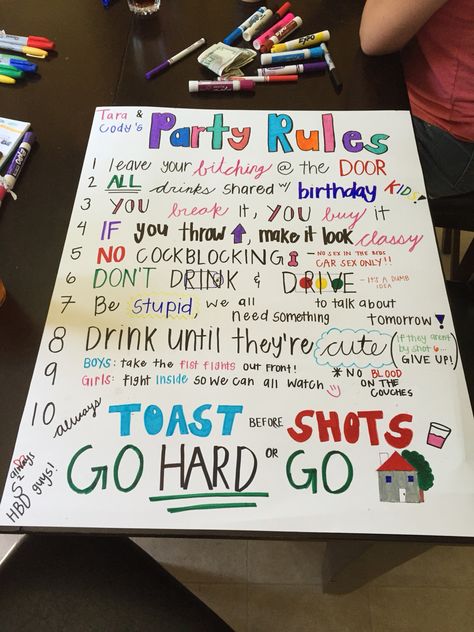 Tara &
Cody's
Party Rules
1 leave your bitching @ the DOOR
2 ALL drinks shared w/ birthday KIDS!
3 YOU break it, YOU buy it
4 IF you throw ↑, make it look classy
5 NO COCKBLOCKING - NO SEX IN THE BEDS
CAR SEX ONLY!!
6 DON'T DRINK & DRIVE - IT'S A DUMB
IDEA
7 Be stupid we all need something to talk about tomorrow!
8 Drink until they're cute (if they arent
by shot 6...
GIVE UP!)
9 BOYS: take the fist fights out front!
GIRLS: fight inside so we can all watch
* NO BLOOD
ON THE
COUCHES
10 always TOAST BEFORE SHOTS
GO HARD OR GO
always
HBD guys!